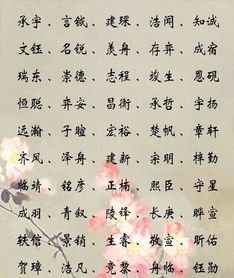 承宇、言铖、建琛、浩闻、知诚
文钰、名锐、美舟、存弈、成宿
瑞东、崇德、志程、竣生、恩砚
恒聪、弈安、昌衡、承哲、宇扬
远瀚、子瞳、宏裕、楚帆、章轩
齐风、泽舟、建新、宗明、梓勤
临靖、铭彦、正楠、熙臣、守星
成羽、青叙、陵锋、长庚、晔宣
轶信、景销、生睿、敬宣、昕佑
贺璋、浩凡、竟黎、舟临、钰勋